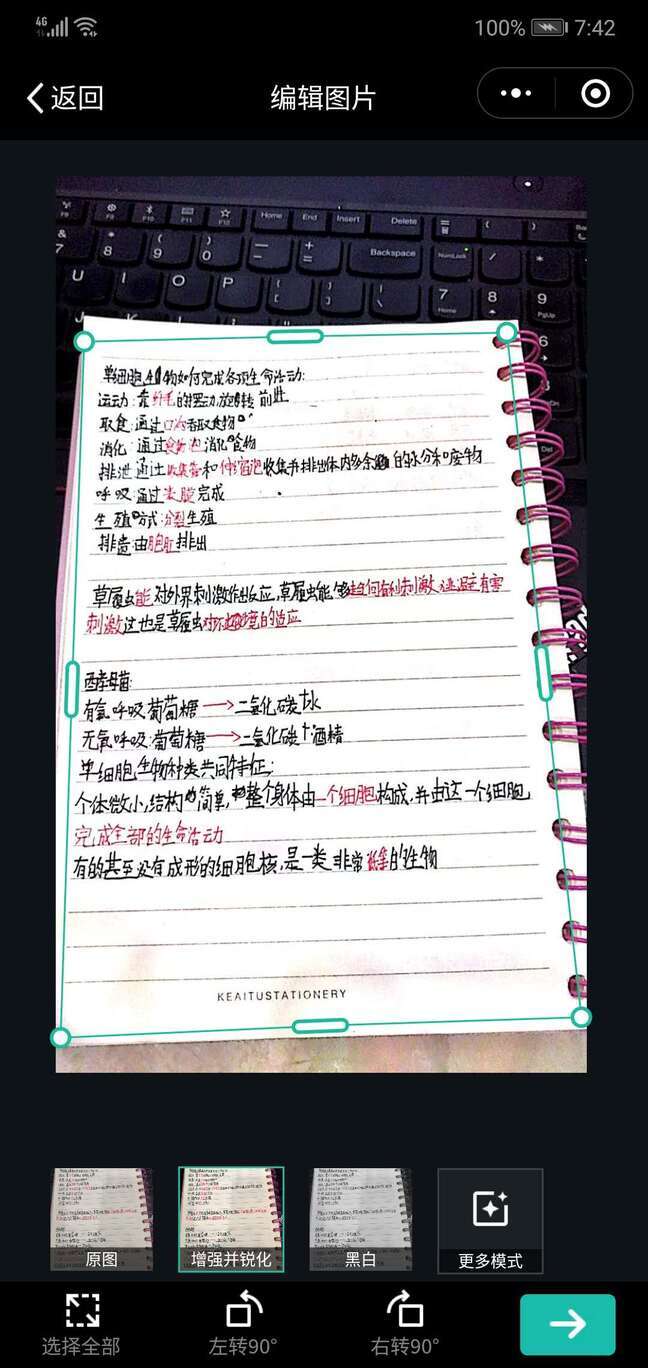 4G 100% 7:42
返回 编辑图片
F9 F10 F11 F12 Home End Insert Delete
& 7 * 8 ( 9 ) 0 — - + = Backspace NumLock / *
U I O P { [ } ] | \ 7 Home 8 9 PgUp
J K 6
单细胞生物如何完成各项生命活动:
运动:靠纤毛的摆动旋转前进
取食:通过口沟吞取食物
消化:通过食物泡消化食物
排泄:通过收集管和伸缩泡收集并排出体内多余的水分和废物
呼吸:通过表膜完成
生殖方式:分裂生殖
排粪:由胞肛排出
草履虫能对外界刺激作出反应,草履虫能够趋向有利刺激,逃避有害
刺激这也是草履虫对环境的适应
酵母菌:
有氧呼吸葡萄糖→二氧化碳+水
无氧呼吸:葡萄糖→二氧化碳+酒精
单细胞生物种类共同特征:
个体微小,结构简单,整个身体由一个细胞构成,并由这一个细胞
完成全部的生命活动
有的甚至没有成形的细胞核,是一类非常的生物
KEAITUSTATIONERY
原图 增强并锐化 黑白 更多模式
选择全部 左转90° 右转90°